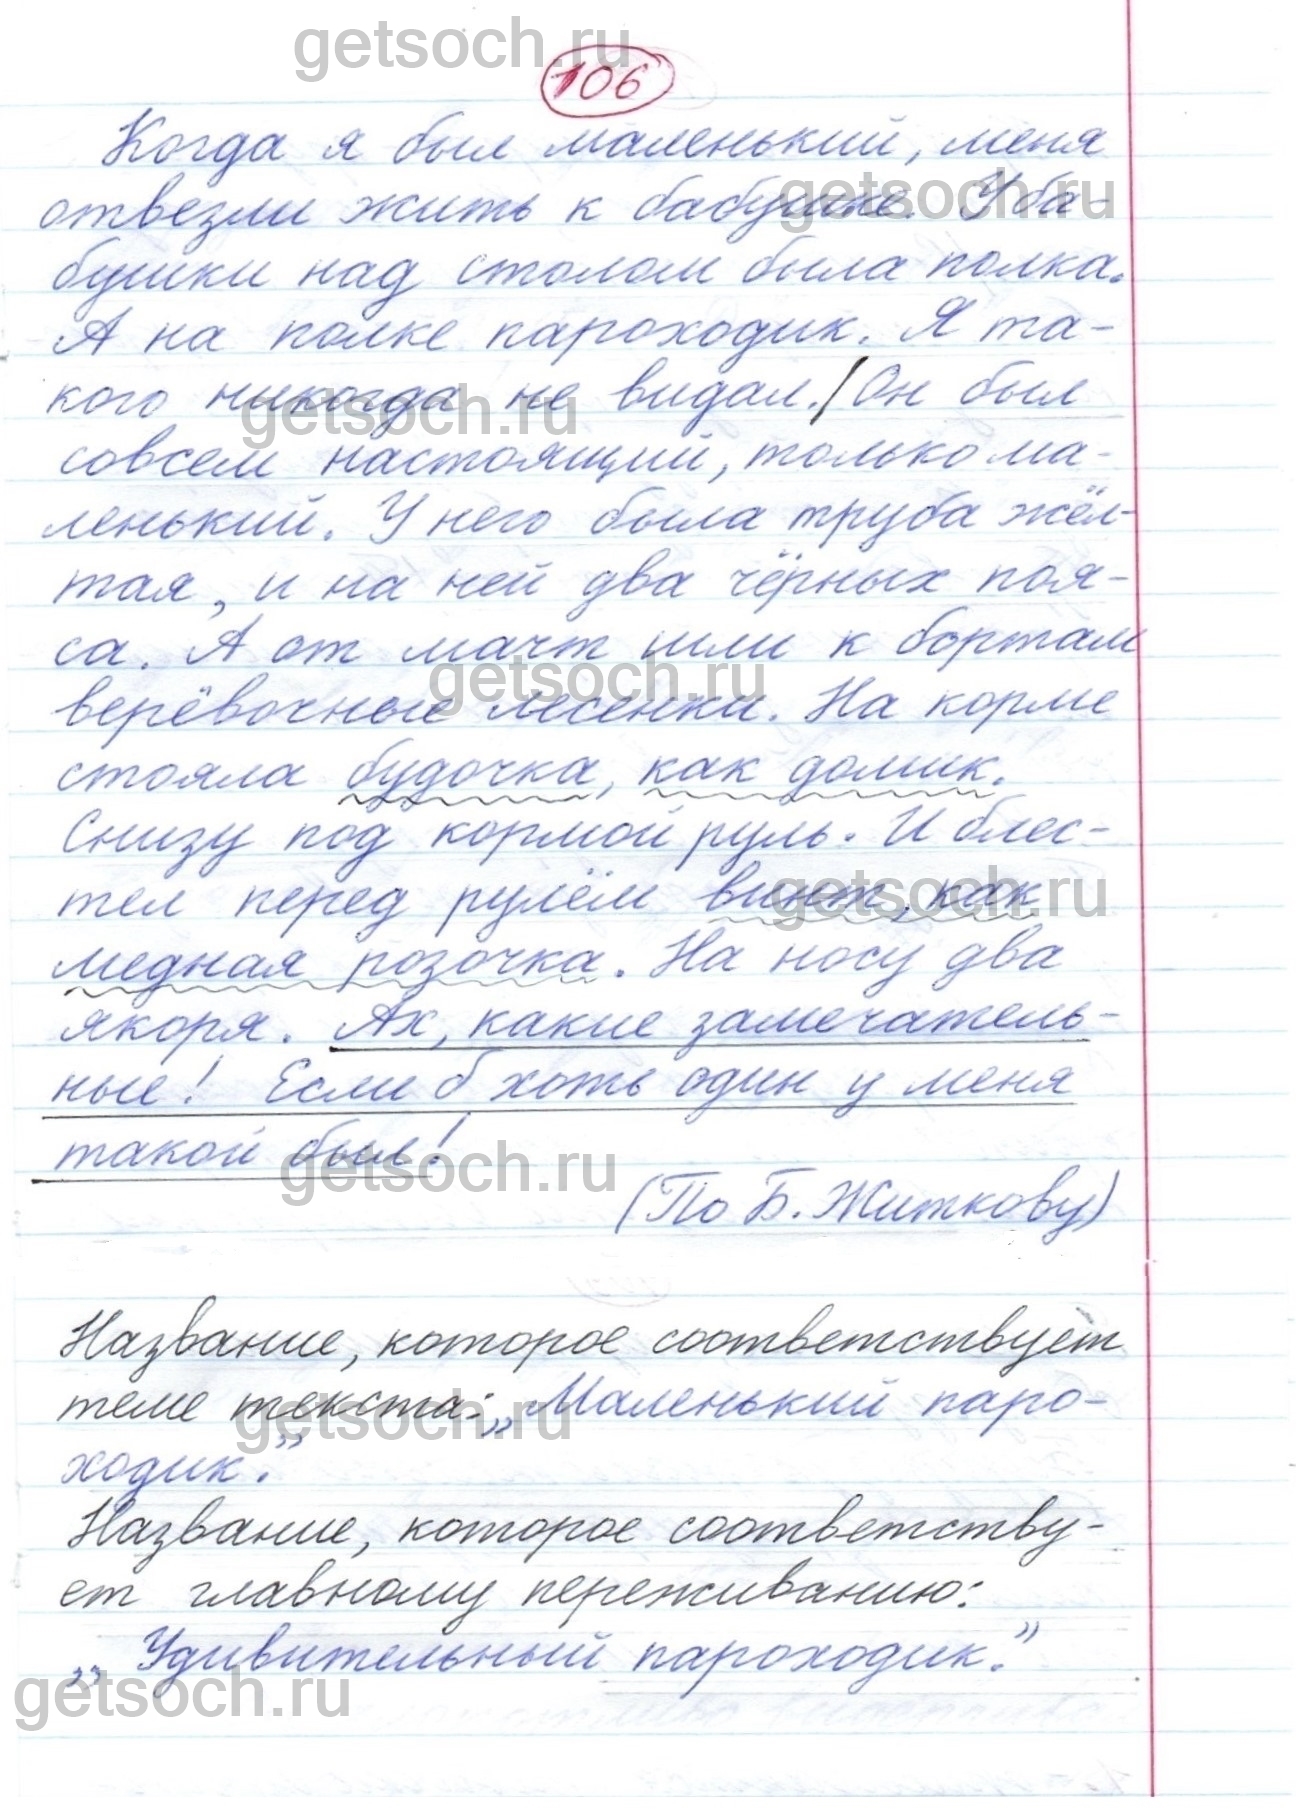 getsoch.ru
106
Когда я был маленький, меня
отвезли жить к бабушке. У ба-
getsoch.ru
бушки над столом была полка.
А на полке пароходик. Я та-
кого никогда не видал./Он был
getsoch.ru
совсем настоящий, только ма-
ленький. У него была труба жёл-
тая, и на ней два чёрных поя-
са. А от мачт шли к бортам
getsoch.ru
верёвочные лесенки. На корме
стояла будочка, как домик.
Снизу под кормой руль. И блес-
тел перед рулём винт, как
getsoch.ru
медная розочка. На носу два
якоря. Ах, какие замечатель-
ные! Если б хоть один у меня
такой был!
getsoch.ru
(По Б. Житкову)
Название, которое соответствует
теме текста: „Маленький паро-
getsoch.ru
ходик.”
Название, которое соответству-
ет главному переживанию:
„Удивительный пароходик.”
getsoch.ru